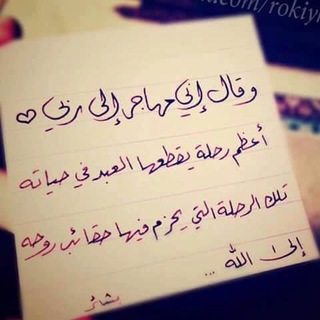 وقال إني مهاجر إلى ربي ♡
أعظم رحلة يقطعها العبد في حياته
تلك الرحلة التي يحزم فيها حقائب روحه
إلى الله ...
بشائر